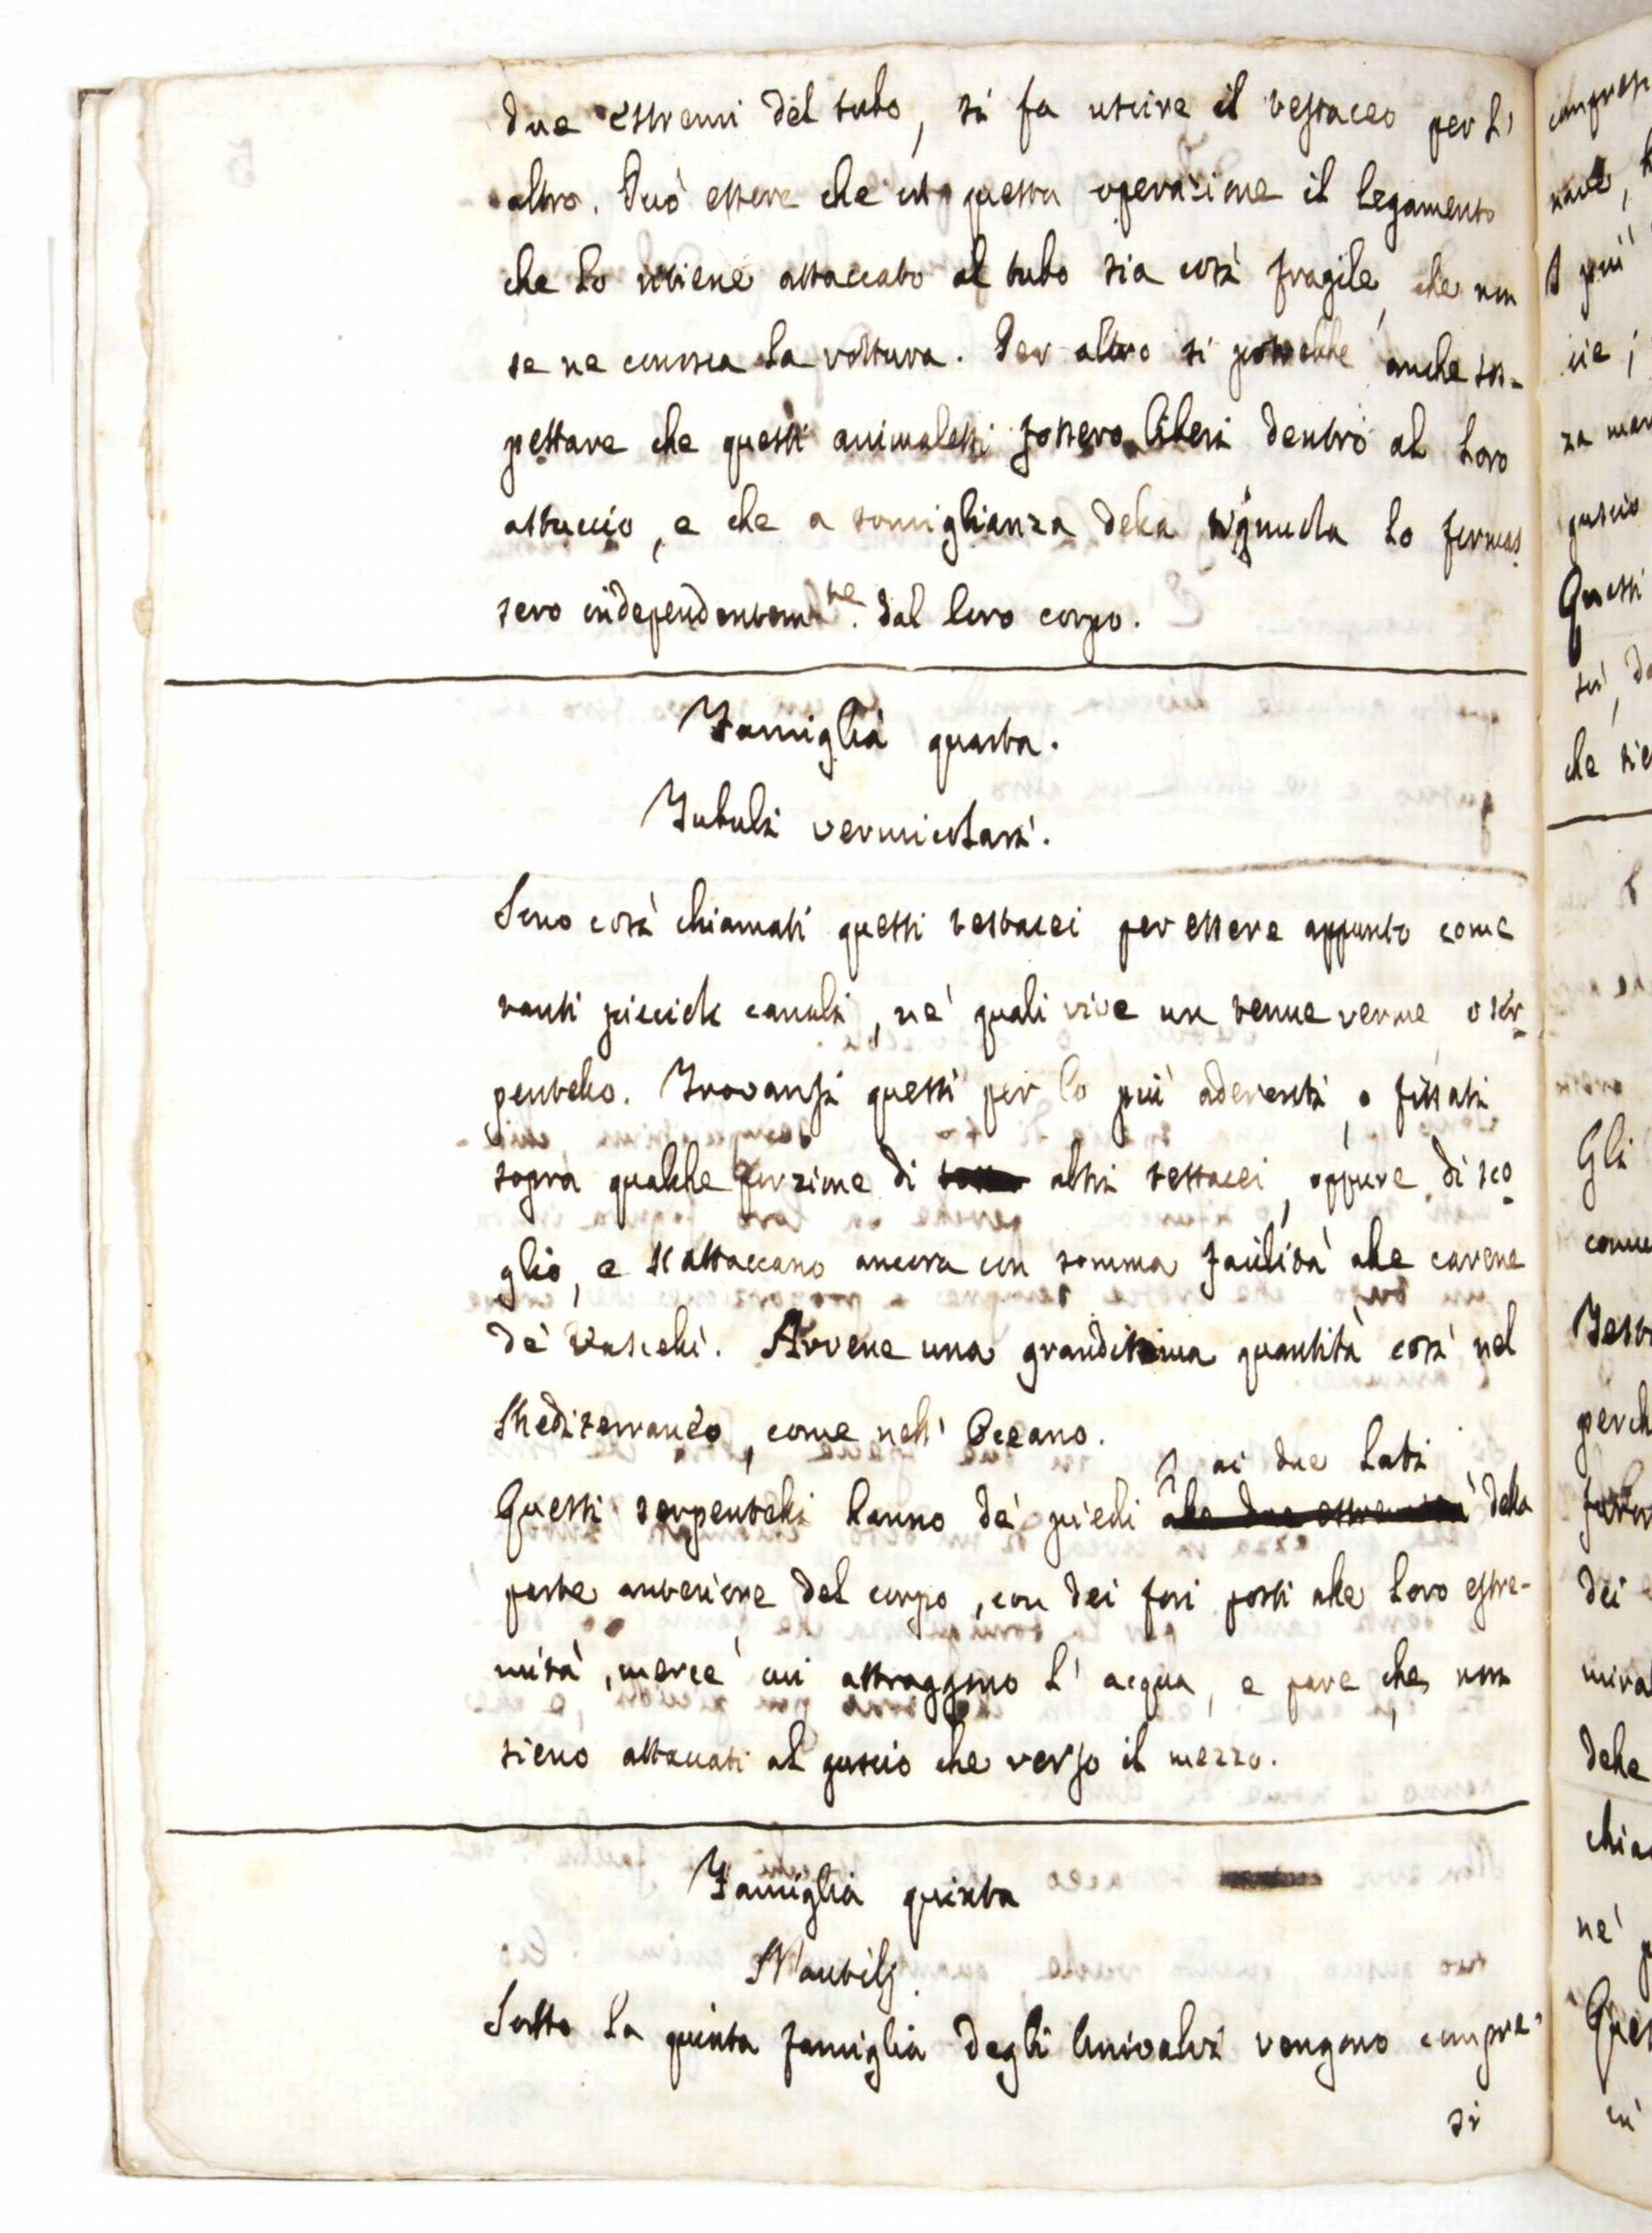 due estremi del tubo, si fa uscire il testaceo per l'
altro. Può essere che in questa operazione il legamento
che lo ritiene attaccato al tubo sia così fragile, che non
se ne conosca la rottura. Per altro si potrebbe anche sos-
pettare che questi animaletti fossero liberi dentro al loro
astuccio, e che a somiglianza della tignuola lo formas
sero independentem.te dal loro corpo.
Famiglia quarta.
Tubuli vermicolari.
Sono così chiamati questi testacei per essere appunto come
tanti piccioli canali, ne' quali vive un tenue verme o ser-
pentello. Trovansi questi per lo più aderenti, o fissati
sopra qualche porzione di altri testacei, oppure di sco
glio, e s'attaccano ancora con somma facilità alle carene
de' Vascelli. Avvene una grandissima quantità così nel
Mediterraneo, come nell' Oceano.
ai due lati
Questi serpentelli hanno de' piedi alle due estremità della
parte anteriore del corpo, con dei fori posti alle loro estre-
mità, mercè cui attraggono l' acqua, e pare che non
sieno attaccati al guscio che verso il mezzo.
Famiglia quinta
Nautilj.
Sotto la quinta famiglia degli Univalvi vengono compre-
si